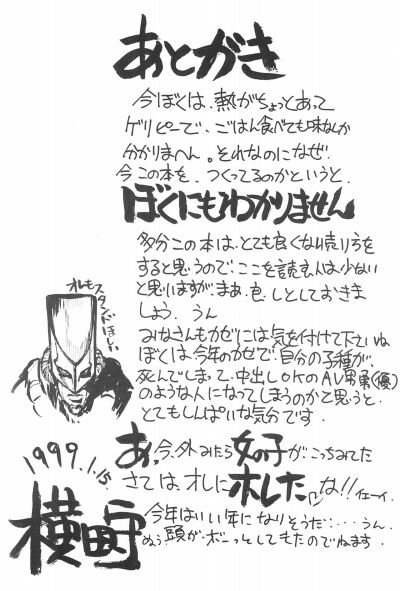 あとがき
今ぼくは、熱がちょっとあって
ゲリピーで、ごはん食べても味なんか
分かりまへん。それなのになぜ
今この本を、つくってるのかというと、
ぼくにもわかりません
多分この本は、とても良くない売りうを
すると思うので、ここを読む人は少ない
と思いますが、まあ、
よしとしておきま
しょう。うん
みなさんもカゼには気を付けて下さいね
ぼくは、今年のカゼで、自分の子種が
死んでしまって、中出しOKのAV男優(優)
のような人になってしまうのかと思うと、
とてもしんぱいな気分です。
オレもスタンドほしい
あっ、今、外みたら女の子がこっちみてた
さては、オレにホレたな!!イェーイ
今年はいい年になりそうだ・・・・うん
ぬぅ、頭がボーっとしてきたのでねます。
1999.1.15
横田守